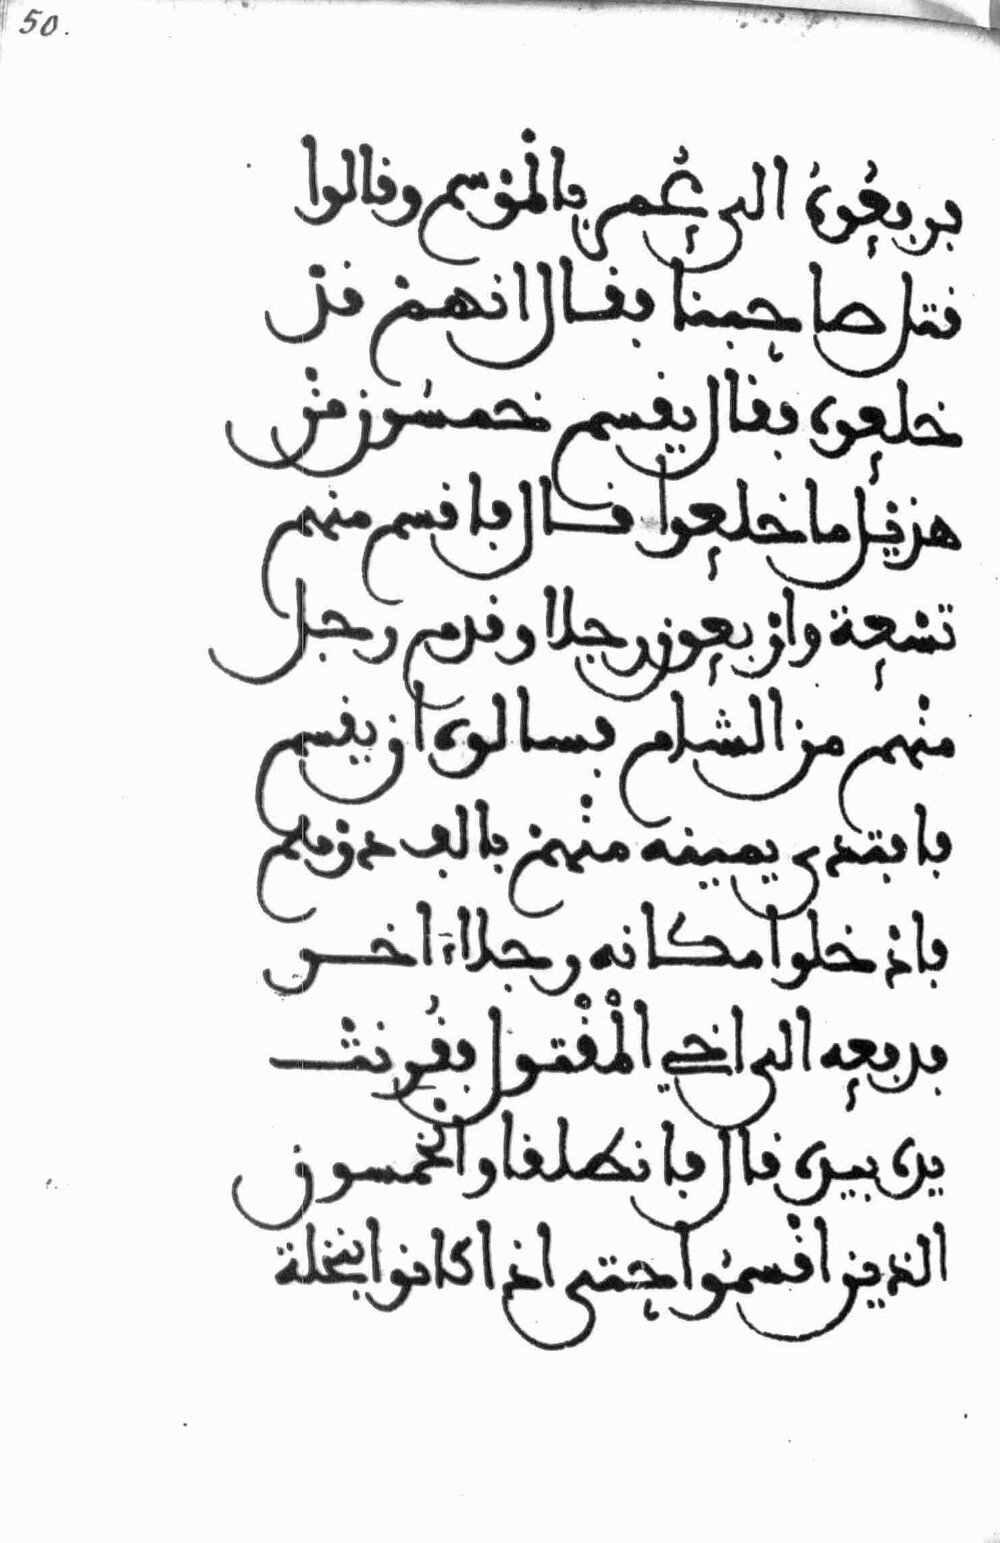 50.
فرفعوه الى عمر بالموسم وقالوا
قتل صاحبنا فقال انهم قد
خلعوه فقال يقسم خمسون من
هذيل ما خلعوا قال فاقسم منهم
تسعة واربعون رجلا وقدم رجل
منهم من الشام فسالوه ان يقسم
فافتدى يمينه منهم بالف درهم
فادخلوا مكانه رجلا اخر
فدفعه الى اخي المقتول فقرنت
يده بيده قال فانطلقا والخمسون
الذين اقسموا حتى اذا كانوا بنخلة